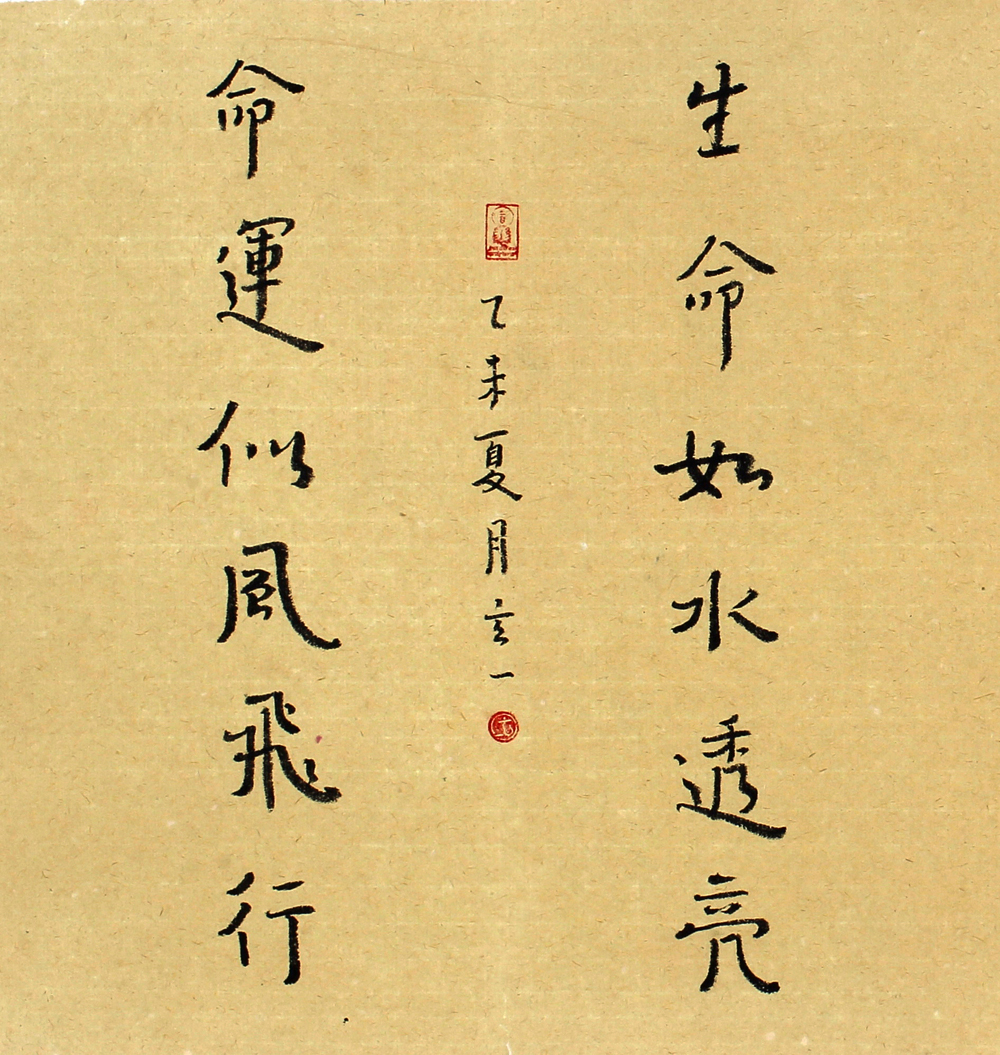 生命如水透亮
命運似風飛行
乙未夏月玄一